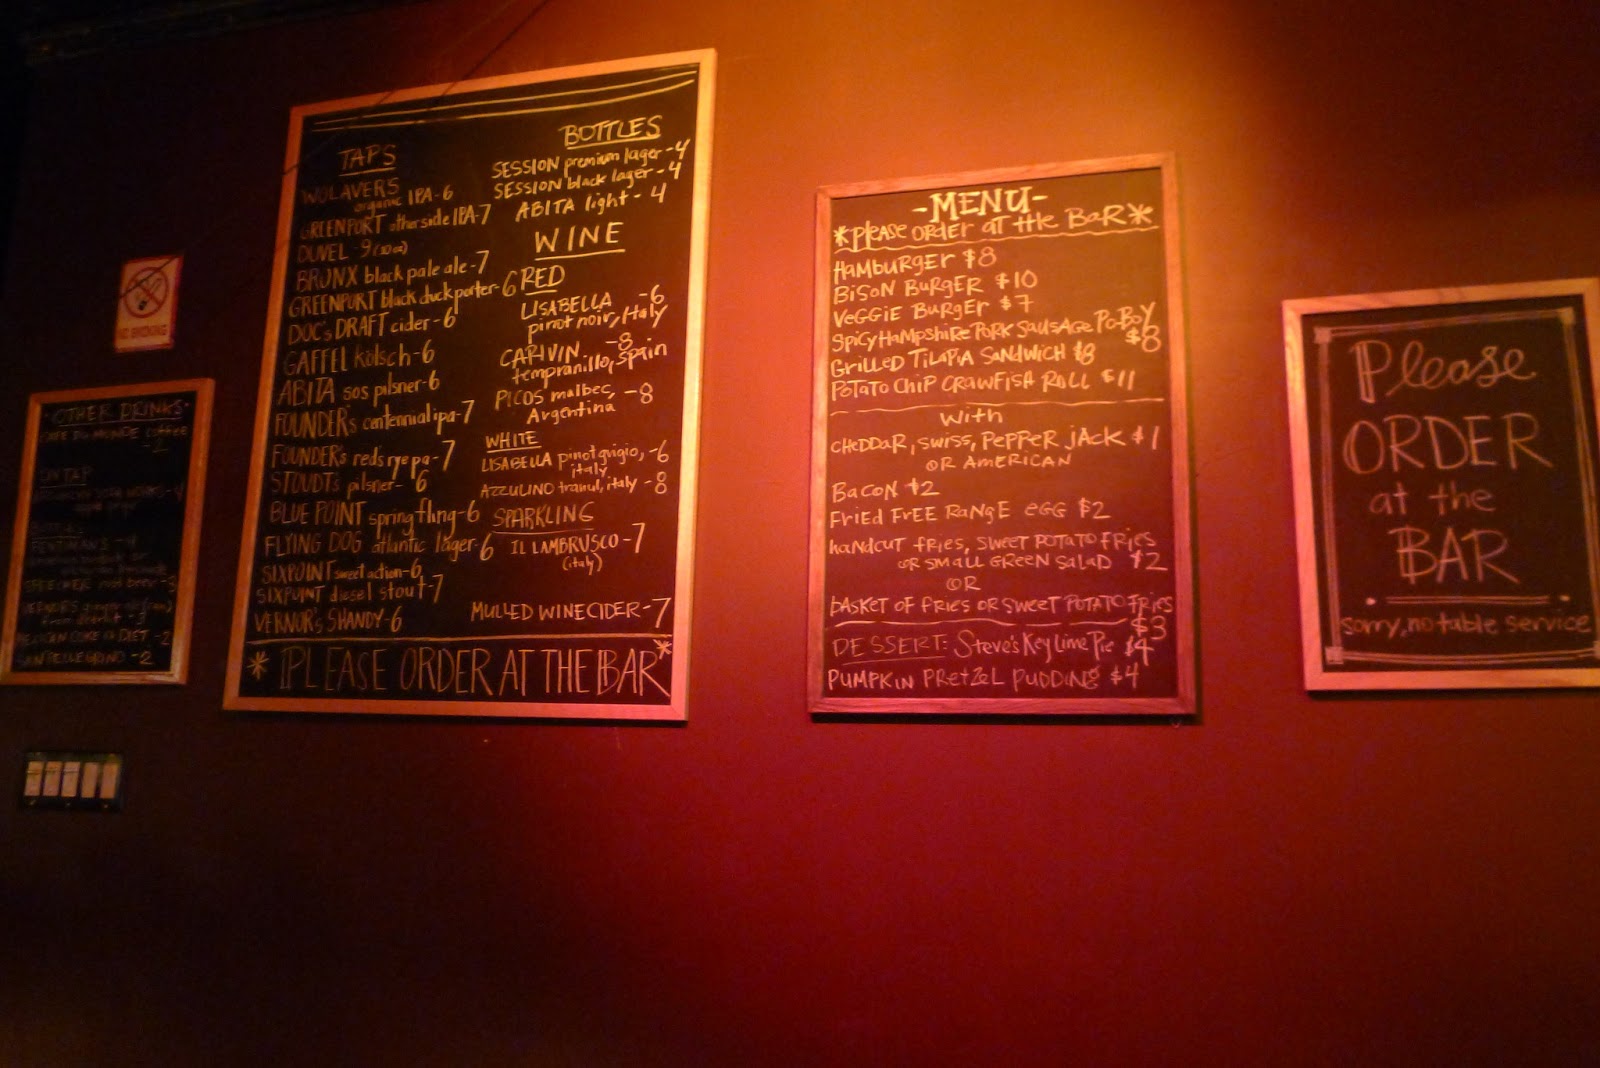 NO SMOKING
OTHER DRINKS
CAFE DU MONDE coffee
- 2
ON TAP
SPRECHER root beer - 3
VERNOR'S ginger ale
MEXICAN COKE or DIET - 2
SAN PELLEGRINO - 2
TAPS
WOLAVERS
organic IPA - 6
GREENPORT otherside IPA - 7
DUVEL - 9 (10oz)
BRONX black pale ale - 7
GREENPORT black duck porter - 6
DOC'S DRAFT cider - 6
GAFFEL kölsch - 6
ABITA sos pilsner - 6
FOUNDER'S centennial ipa - 7
FOUNDER'S reds rye pa - 7
STOUDTS pilsner - 6
BLUE POINT spring fling - 6
FLYING DOG atlantic lager - 6
SIXPOINT sweet action - 6
SIXPOINT diesel stout - 7
VERNOR'S SHANDY - 6
BOTTLES
SESSION premium lager - 4
SESSION black lager - 4
ABITA light - 4
WINE
RED
LISABELLA - 6
pinot noir, Italy
CARIVIN - 8
tempranillo, Spain
PICOS malbec, - 8
Argentina
WHITE
LISABELLA pinot grigio, - 6
italy
AZZULINO italy - 8
SPARKLING
IL LAMBRUSCO - 7
(italy)
MULLED WINE CIDER - 7
* PLEASE ORDER AT THE BAR *
- MENU -
* Please ORDER at the BaR *
HamBURGER $8
BiSON BURGER $10
VeGGIE BURGER $7
SPiCY HaMPSHiRE PORK SaUSAGE Po-BoY
$8
GRILLED TiLaPiA SANDWiCH $8
POTaTO CHiP CRAWFiSH ROLL $11
with
CHeDDAR, SWiSS, PePPER jACK $1
OR AMERiCAN
BaCON $2
FRied FREE RaNGE eGG $2
haNdCUT fRies, SWEET POTATO fRIES
OR SMALL GREEN SaLAD $2
OR
baSKET OF fRies OR SWEET POTATO fRiES
$3
DESSERT: Steve's Key Lime Pie $4
PUMPKiN PRetZeL PUDDiNG $4
Please
ORDER
at the
BAR
sorry, no table service